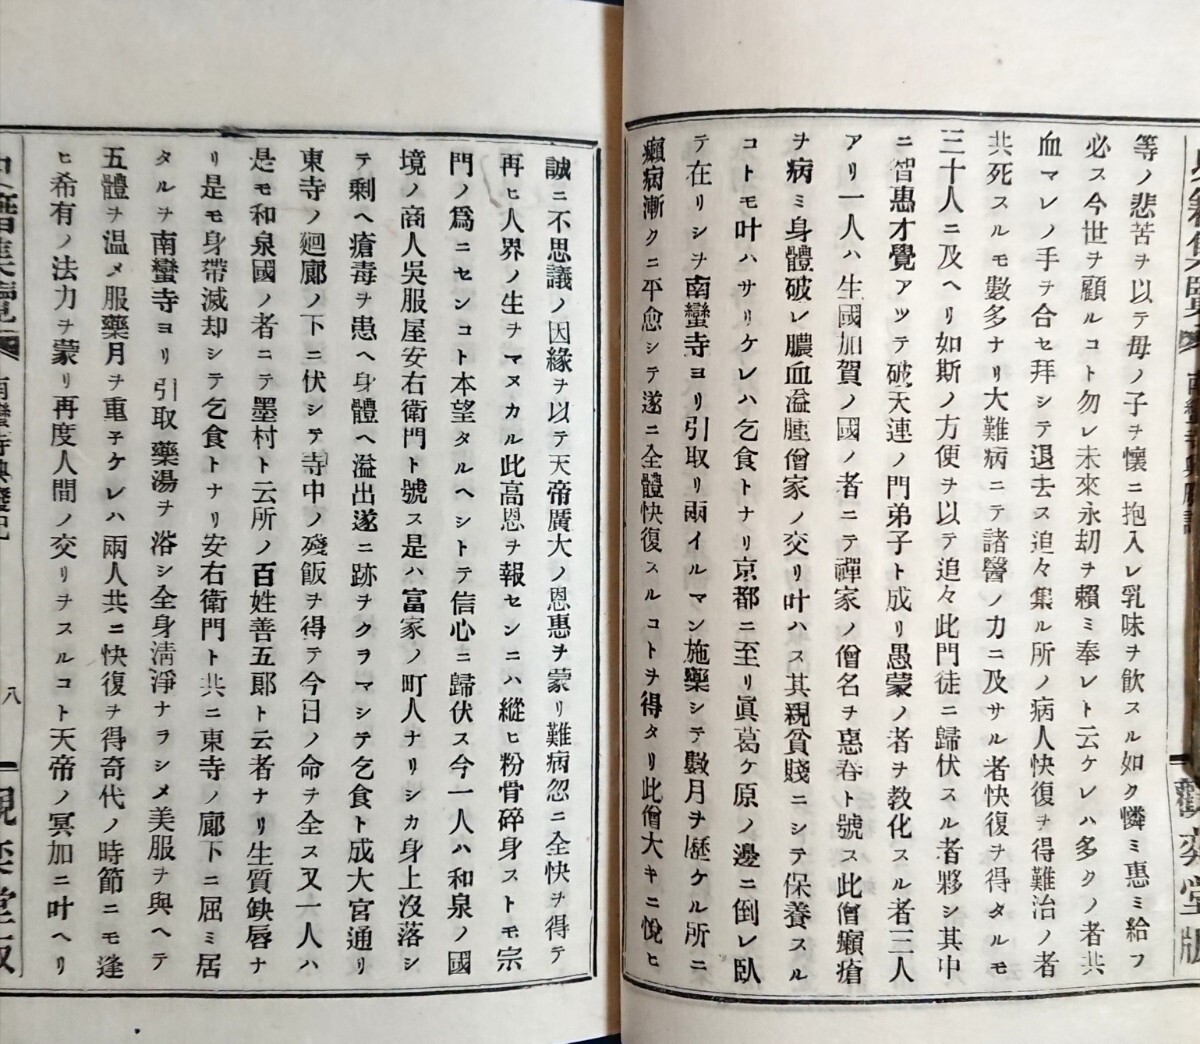 等ノ悲苦ヲ以テ母ノ子ヲ懷ニ抱入レ乳味ヲ飮スル如ク憐ミ惠ミ給フ
必ス今世ヲ顧ルコト勿レ未來永劫ヲ賴ミ奉レト云ケレハ多クノ者共
血マレノ手ヲ合セ拜シテ退去ス追々集ル所ノ病人快復ヲ得難治ノ者
共死スルモ數多ナリ大難病ニテ諸醫ノ力ニ及サル者快復ヲ得タルモ
三十人ニ及ヘリ如斯ノ方便ヲ以テ追々此門徒ニ歸伏スル者夥シ其中
ニ智惠才覺アツテ破天連ノ門弟子ト成リ愚蒙ノ者ヲ教化スル者三人
アリ一人ハ生國加賀ノ國ノ者ニテ禪家ノ僧名ヲ惠春ト號ス此僧癩瘡
ヲ病ミ身體破レ膿血溢腫僧家ノ交リ叶ハス其親貧賤ニシテ保養スル
コトモ叶ハサリケレハ乞食トナリ京都ニ至リ眞葛ケ原ノ邊ニ倒レ臥
テ在リシヲ南蠻寺ヨリ引取リ兩イルマン施藥シテ數月ヲ歷ケル所ニ
癩病漸クニ平愈シテ遂ニ全體快復スルコトヲ得タリ此僧大キニ悅ヒ
觀奕堂版
誠ニ不思議ノ因緣ヲ以テ天帝廣大ノ恩惠ヲ蒙リ難病忽ニ全快ヲ得テ
再ヒ人界ノ生ヲマヌカル此高恩ヲ報センニハ縱ヒ粉骨碎身ストモ宗
門ノ爲ニセンコト本望タルヘシトテ信心ニ歸伏ス今一人ハ和泉ノ國
境ノ商人吳服屋安右衞門ト號ス是ハ富家ノ町人ナリシカ身上沒落シ
テ剩ヘ瘡毒ヲ患ヘ身體ヘ溢出遂ニ跡ヲクラマシテ乞食ト成大宮通リ
東寺ノ廻廊ノ下ニ伏シテ寺中ノ殘飯ヲ得テ今日ノ命ヲ全ス又一人ハ
是モ和泉國ノ者ニテ墨村ト云所ノ百姓善五郞ト云者ナリ生質缺唇ナ
リ是モ身帶滅却シテ乞食トナリ安右衞門ト共ニ東寺ノ廊下ニ屈ミ居
タルヲ南蠻寺ヨリ引取藥湯ヲ浴シ全身淸淨ナラシメ美服ヲ與ヘテ
五體ヲ温メ服藥月ヲ重子ケレハ兩人共ニ快復ヲ得奇代ノ時節ニモ逢
ヒ希有ノ法力ヲ蒙リ再度人間ノ交リヲスルコト天帝ノ冥加ニ叶ヘリ
八